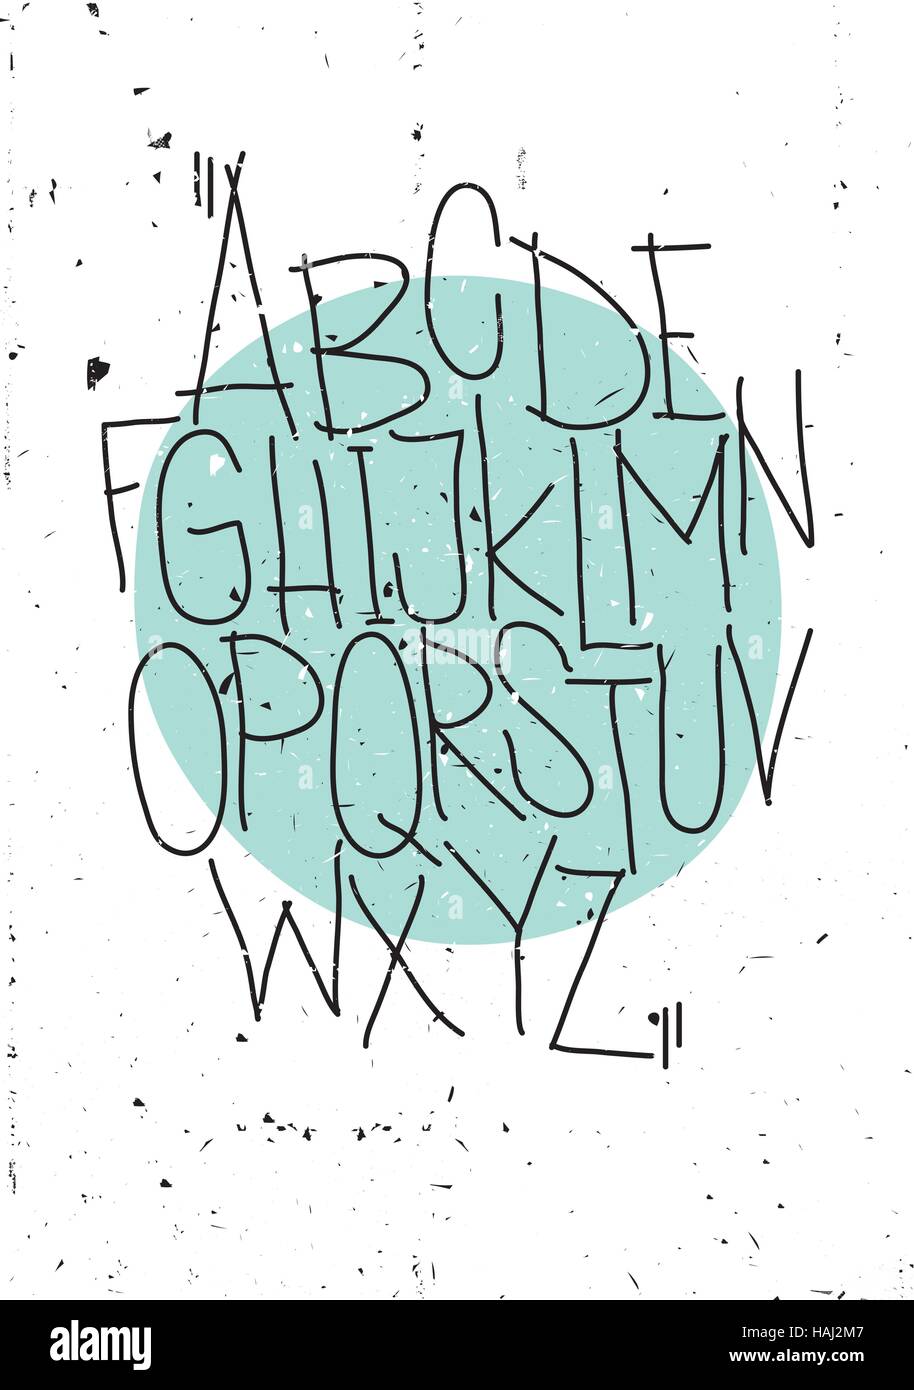 "ABCDE
FGHIJKLMN
OPQRSTUV
WXYZ."
alamy
alamy
Image ID: HAJ2M7
www.alamy.com